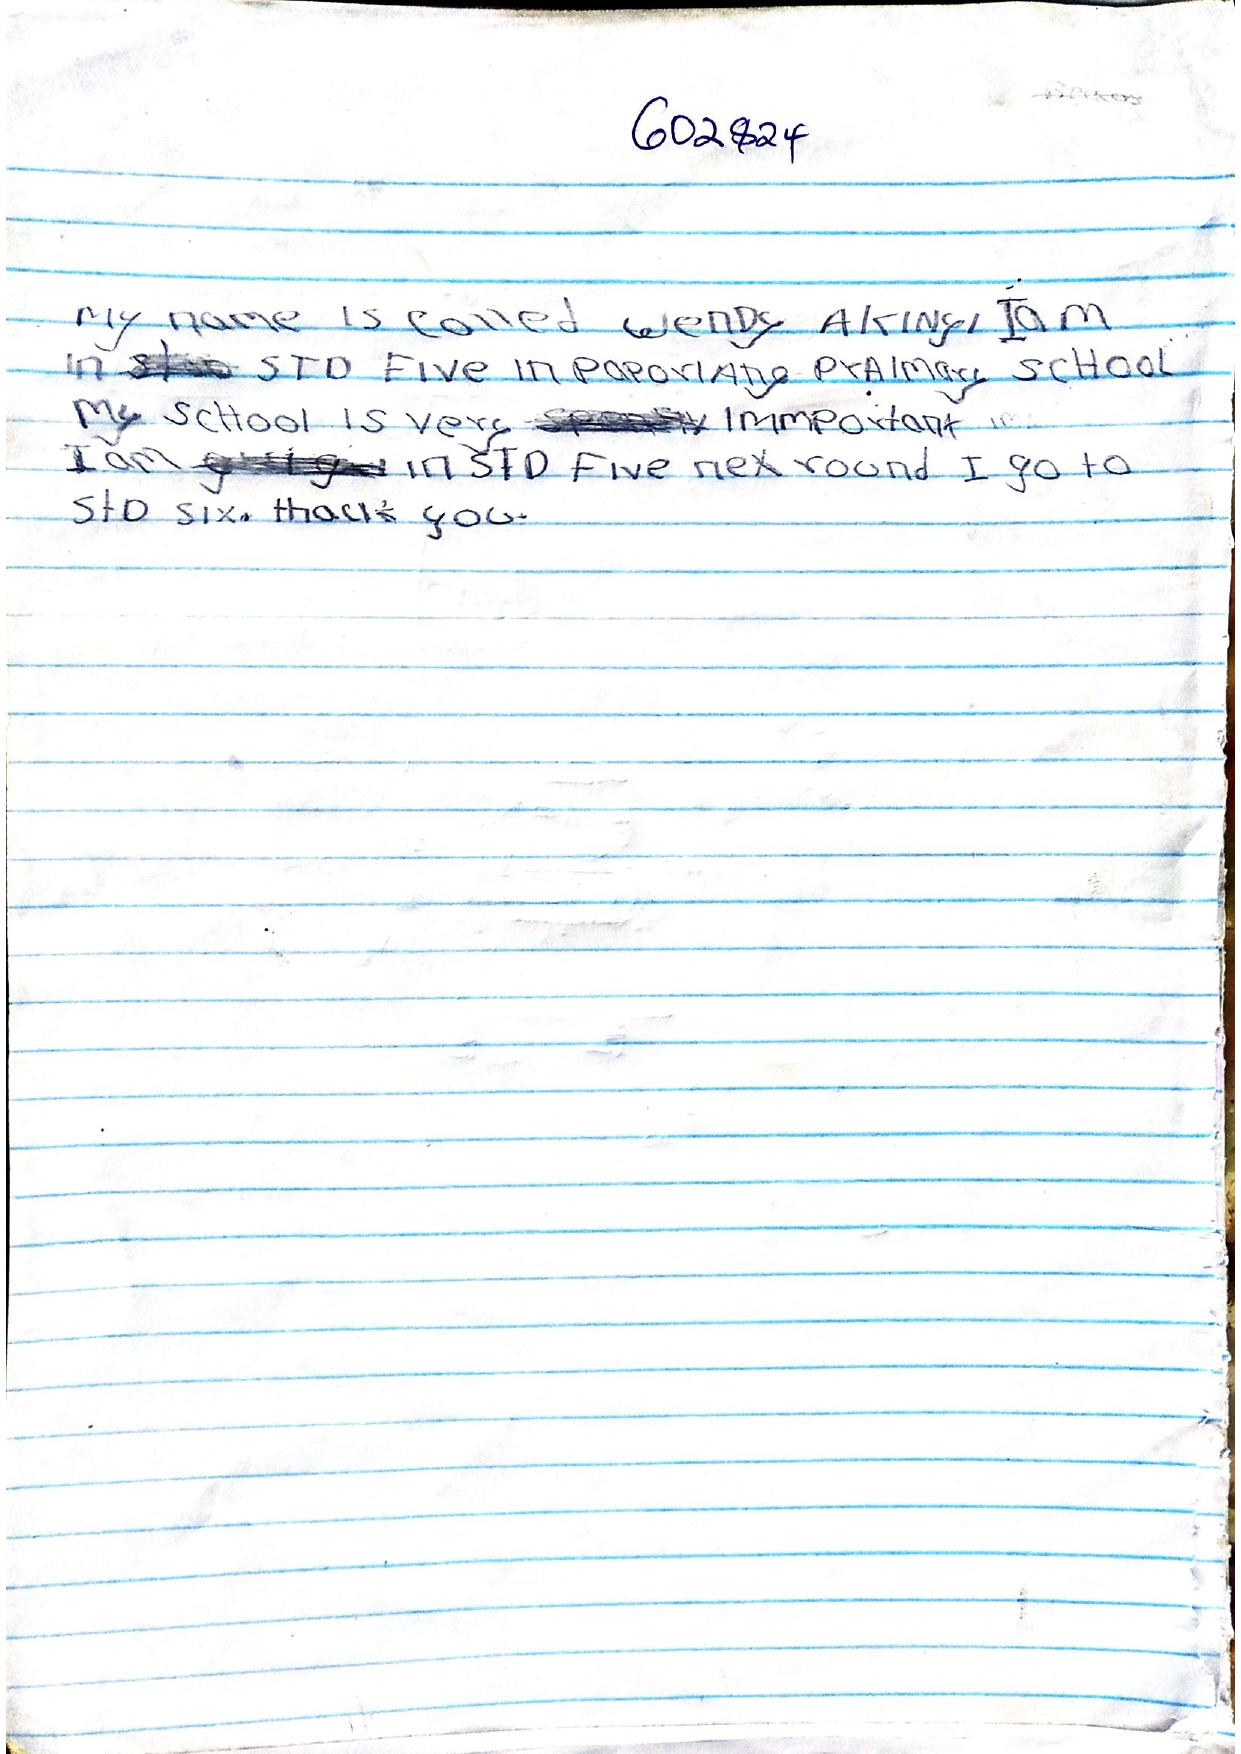 602824
My name is called wendy AKINyi I am
in STD Five in PaPoriAng PrAimary SCHOOL
My SCHOOL is very immportant
I am in STD Five nex round I go to
StD six. thack you.